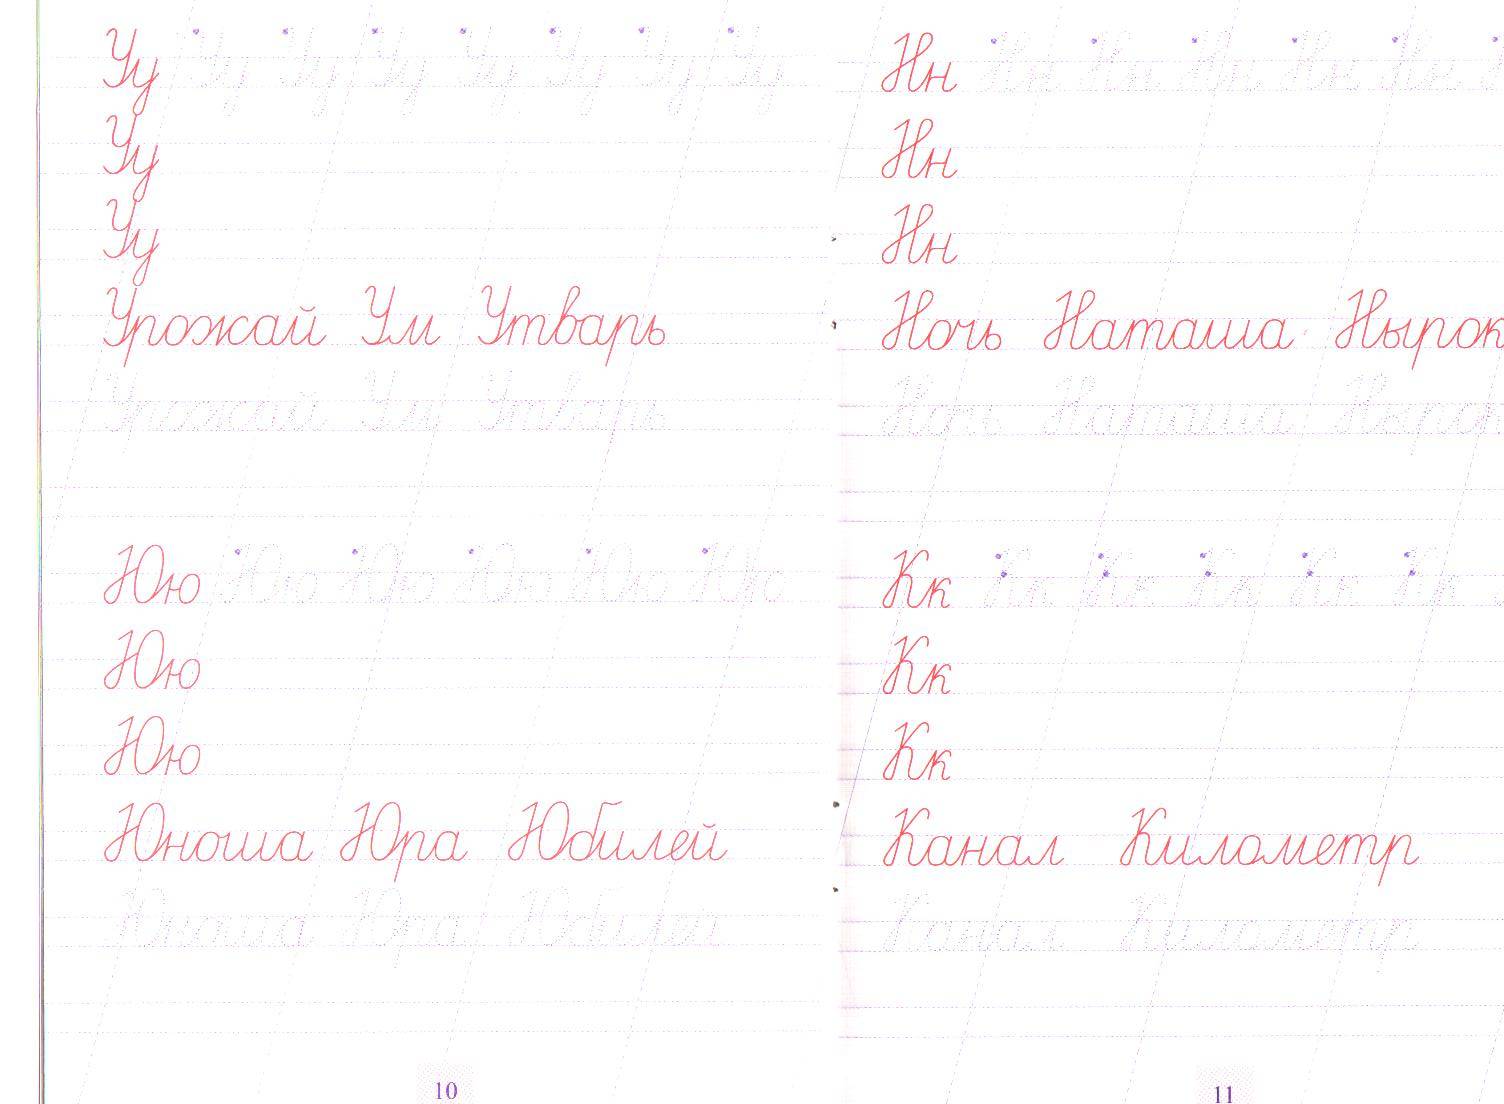 Уу Уу Уу Уу Уу Уу Уу Уу
Уу
Уу
Урожай Ум Утварь
Урожай Ум Утварь
Юю Юю Юю Юю Юю Юю
Юю
Юю
Юноша Юра Юбилей
Юноша Юра Юбилей
10
Нн Нн Нн Нн Нн Нн
Нн
Нн
Ночь Наташа Нырок
Ночь Наташа Нырок
Кк Кк Кк Кк Кк Кк
Кк
Кк
Канал Километр
Канал Километр
11